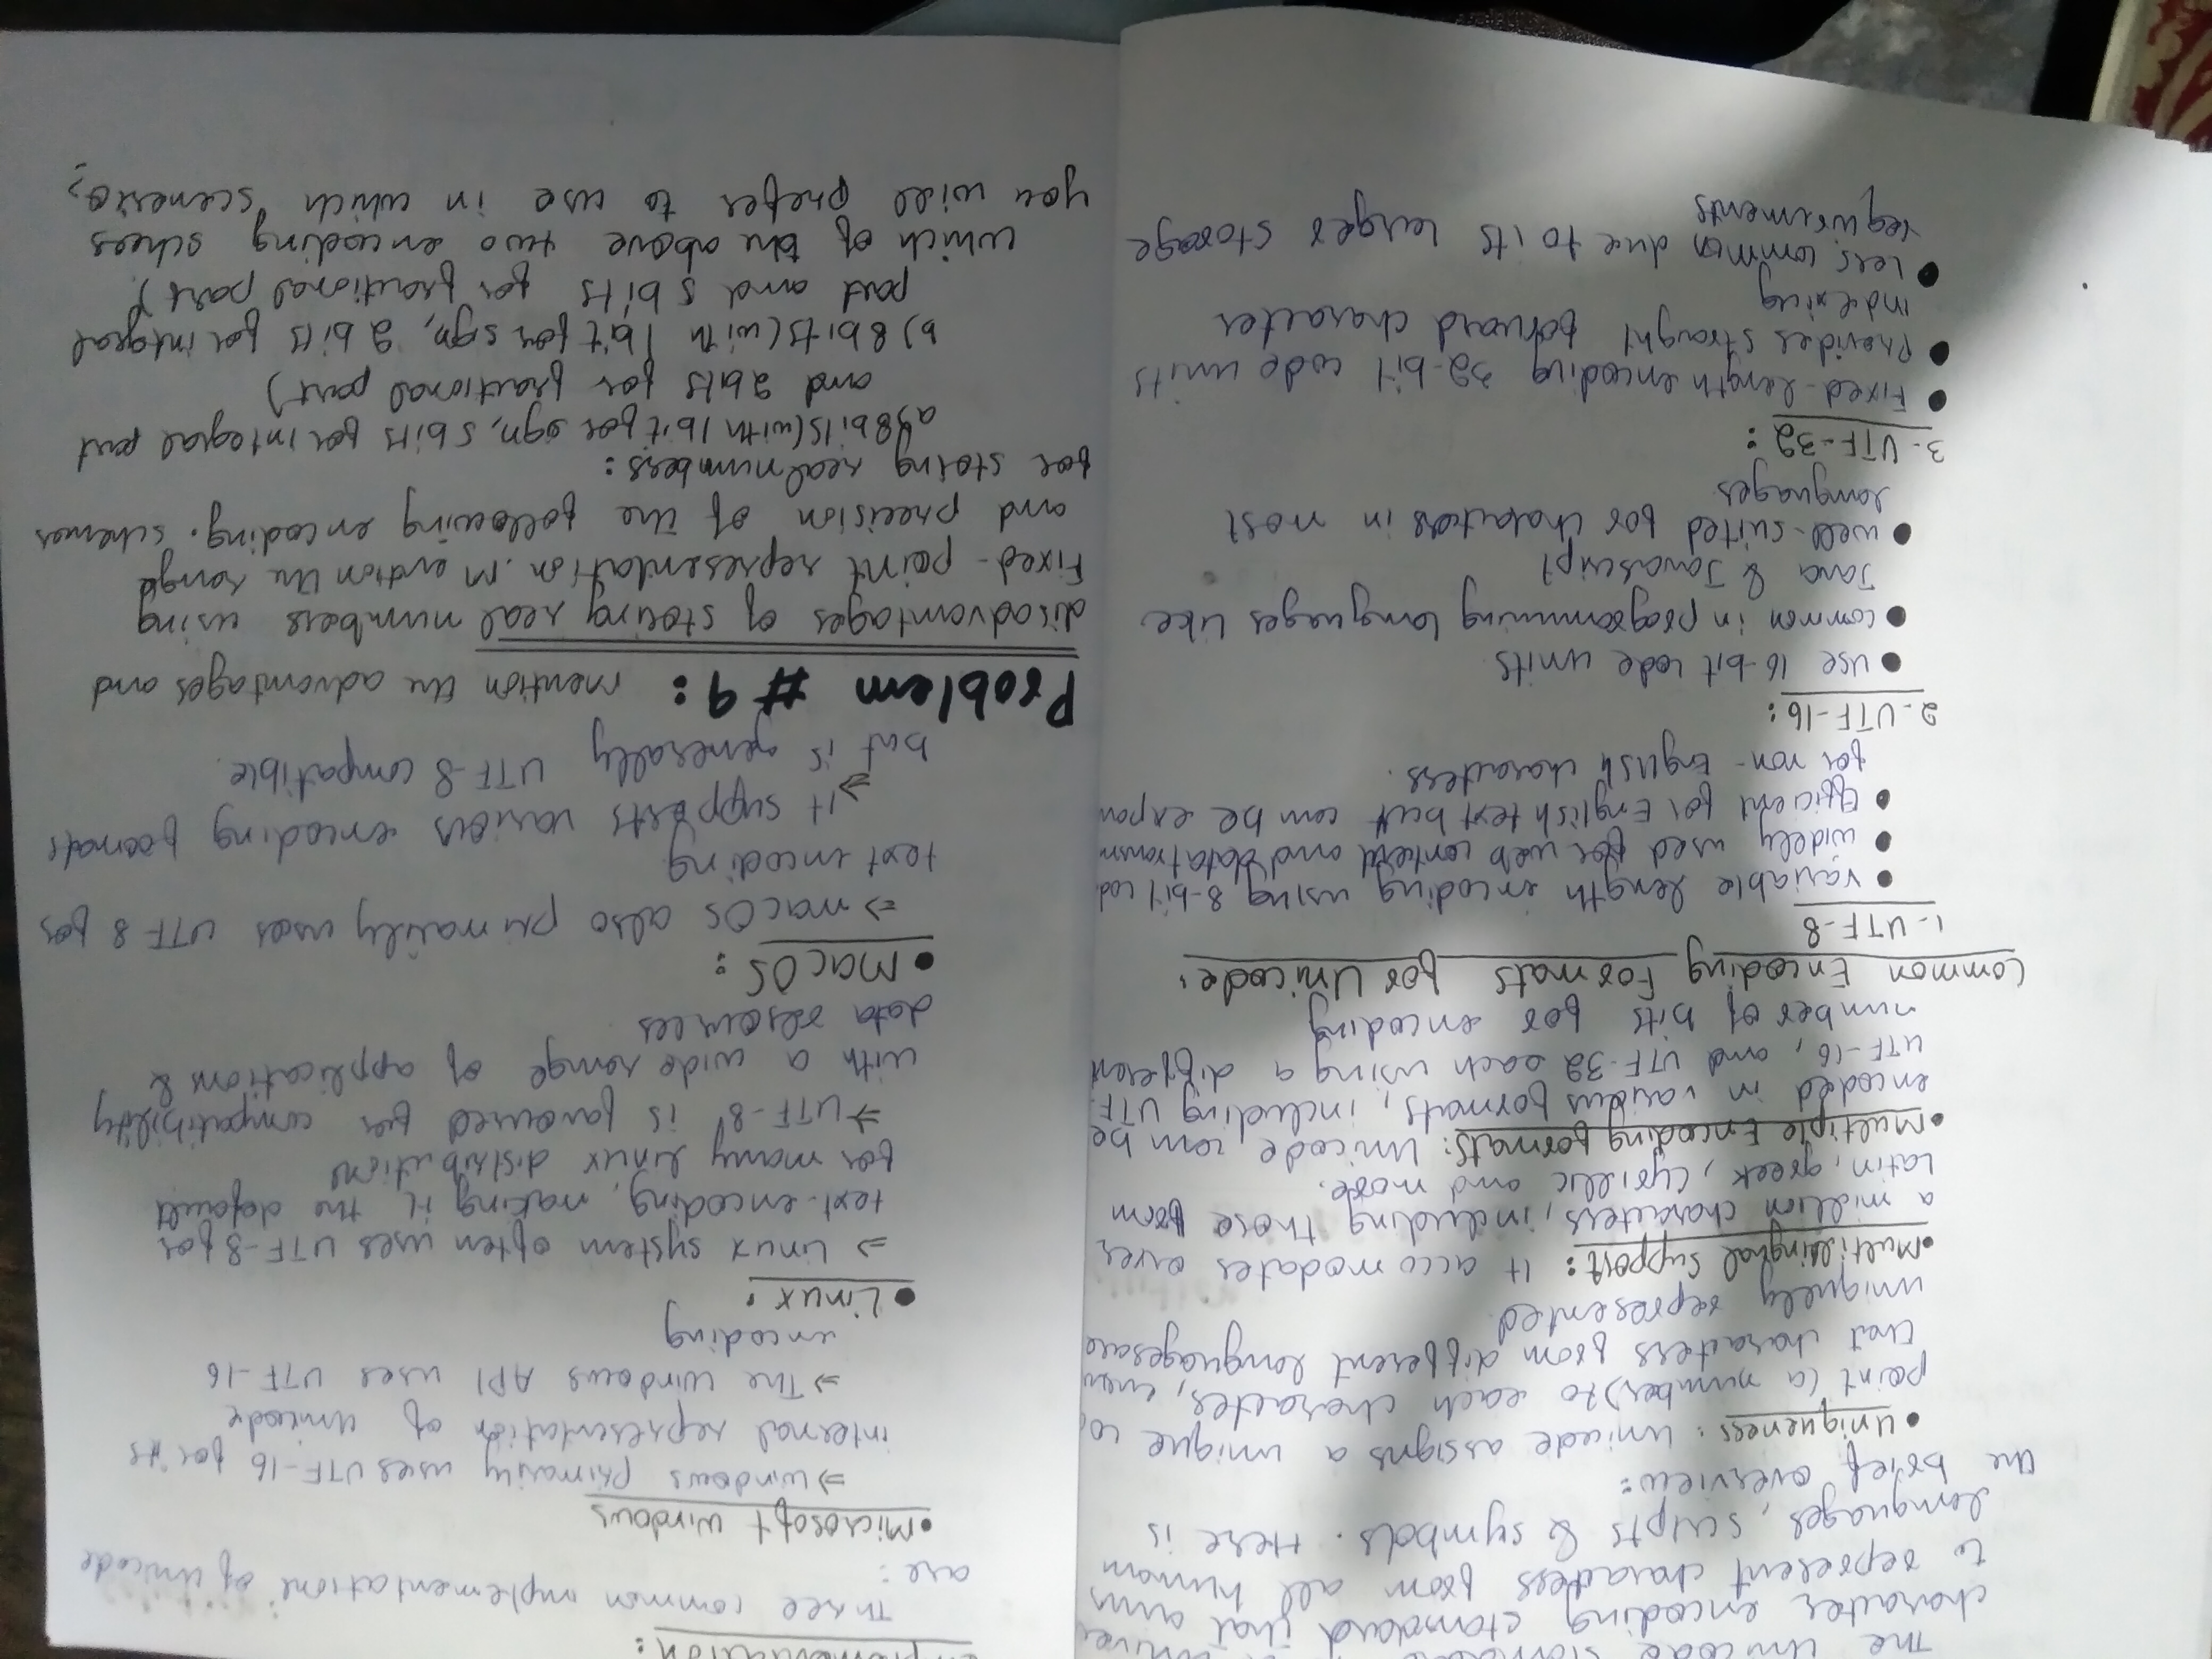 The Unicode standard
character encoding standard that aims
to represent characters from all human
languages, scripts & symbols. Here is
the brief overview:
• Uniqueness: Unicode assigns a unique co
point (a number) to each character, even
that characters from different languages are
uniquely represented.
• Multilingual Support: It accomodates over
a million characters, including those from
Latin, greek, Cyrillic and more.
• Multiple Encoding formats: Unicode can be
encoded in various formats, including UTF-
UTF-16, and UTF-32 each using a different
number of bits for encoding
Common Encoding Formats for Unicode:
1- UTF-8
• variable length encoding using 8-bit cod
• widely used for web content and data transm
• Efficient for English text but can be expan
for non-English characters.
2- UTF-16:
• use 16-bit code units
• common in programming languages like
Java & Javascript
• well-suited for characters in most
languages
3- UTF-32:
• Fixed-length encoding 32-bit code units
• Provides straight forward character
indexing
• Less common due to its larger storage
requirements
Implementation:
Three common implementations of unicode
are:
• Microsoft windows
⇒ windows primarily uses UTF-16 for its
internal representation of unicode
⇒ The windows API uses UTF-16
encoding
• Linux:
⇒ Linux system often uses UTF-8 for
text-encoding, making it the default
for many linux distributions
⇒ UTF-8 is favoured for compatibility
with a wide range of applications &
data resources
• macOS:
⇒ macOS also primarily uses UTF 8 for
text encoding
⇒ It supports various encoding formats
but is generally UTF-8 compatible.
Problem # 9: mention the advantages and
disadvantages of storing real numbers using
Fixed-point representation. Mention the range
and precision of the following encoding. schemes
for storing real numbers:
a) 8 bits (with 1 bit for sign, 5 bits for integral part
and 2 bits for fractional part)
b) 8 bits (with 1 bit for sign, 2 bits for integral
part and 5 bits for fractional part).
which of the above two encoding schees
you will prefer to use in which scenerio;